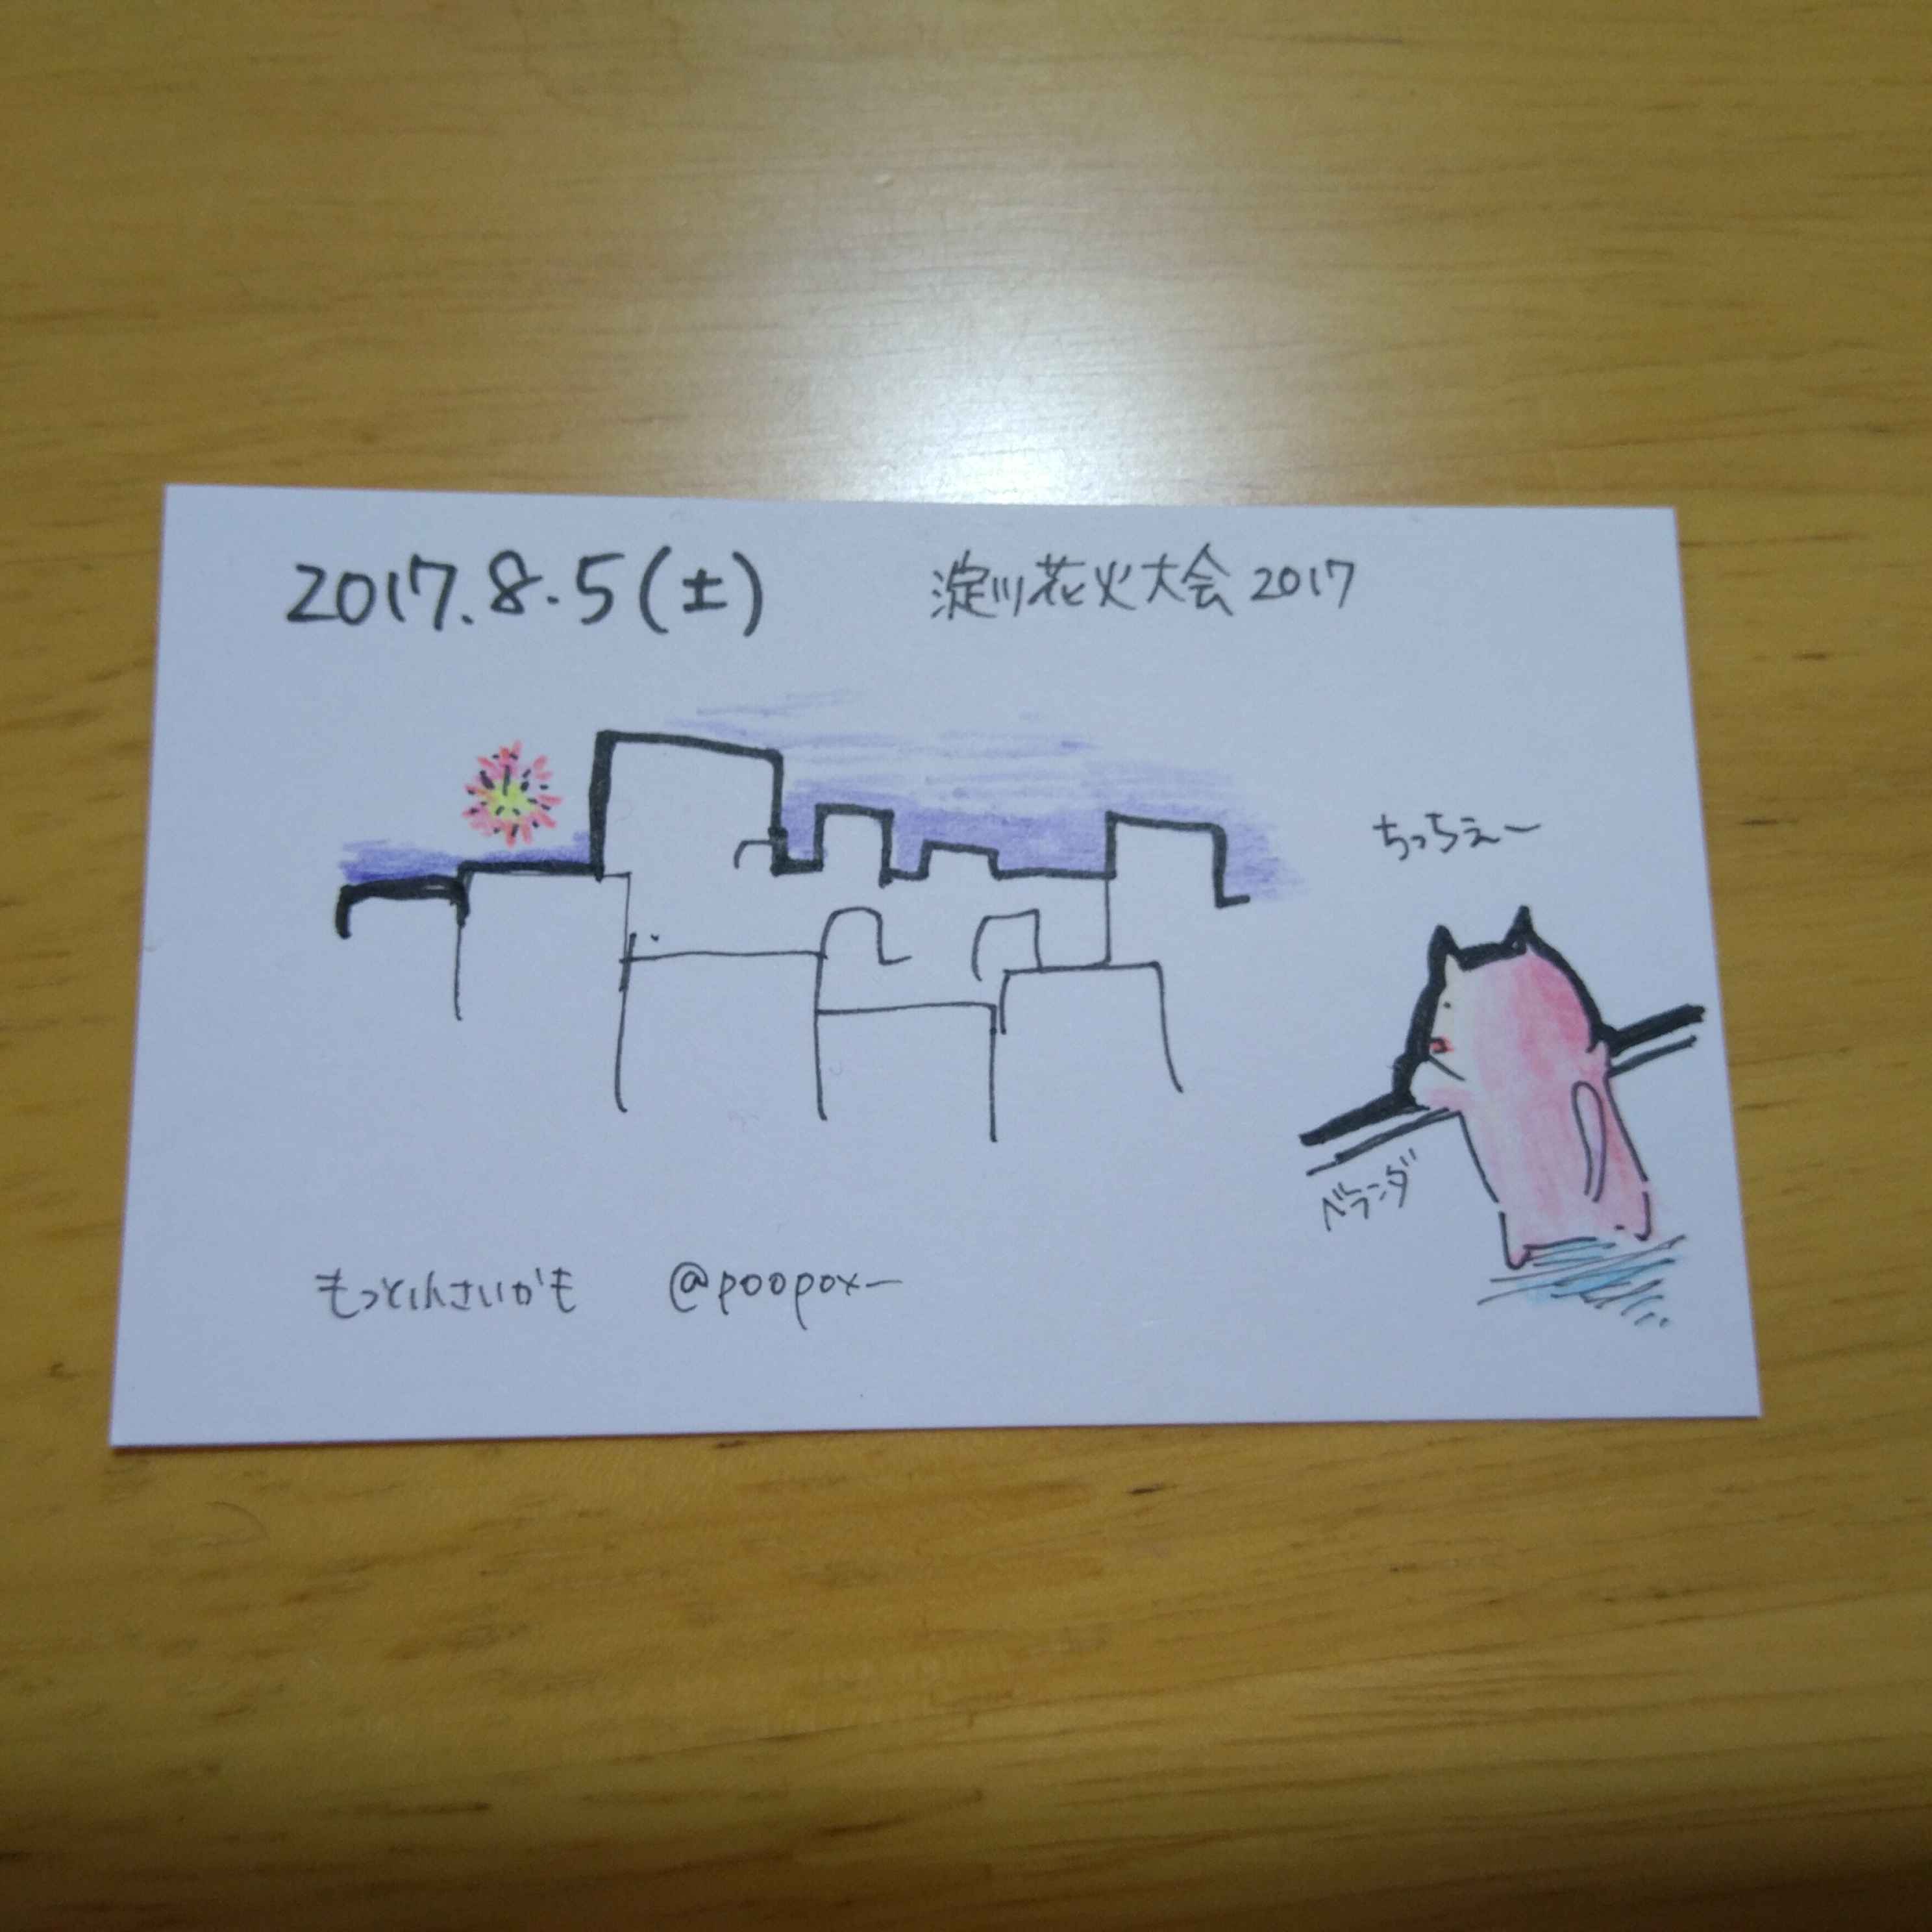 2017.8.5(土)
淀川花火大会2017
ちっちぇ〜
ベランダ
もっと小さいかも
@poopox—